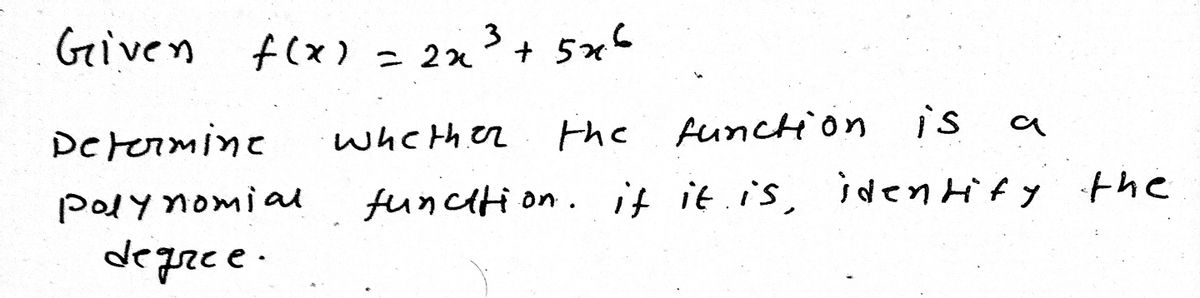 Given f(x) = 2x³ + 5x⁶
Determine whether the function is a
polynomial function. if it is, identify the
degree.